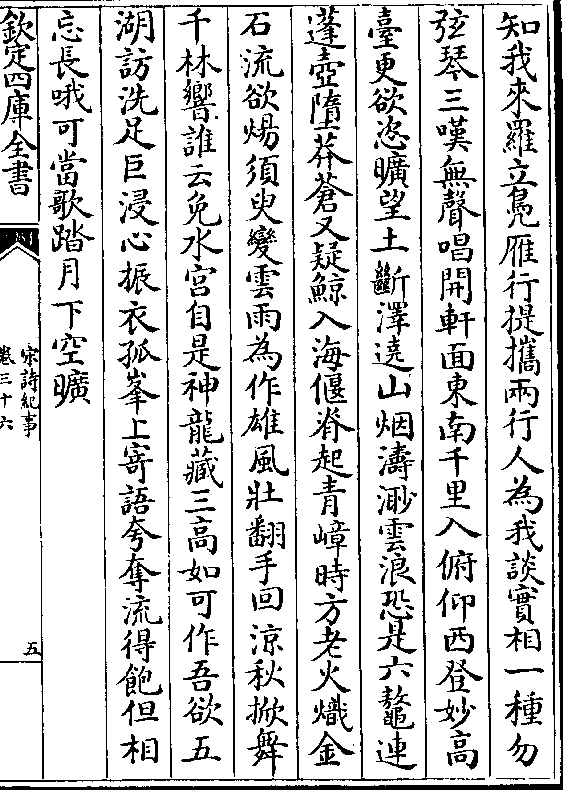 知我來羅立鳧雁行提攜兩行人為我談實相一種勿
弦琴三嘆無聲唱開軒面東南千里入俯仰西登妙高
臺更欲恣曠望土斷澤遶山烟濤渺雲浪恐是六鼇連
蓬壺隋莽蒼又疑鯨入海偃脊起青嶂時方老火熾金
石流欲煬須臾變雲雨為作雄風壯翻手回涼秋掀舞
千林響誰云免水宮自是神龍藏三高如可作吾欲五
湖訪洗足巨浸心振衣孤峯上寄語夸奪流得飽但相
忘長哦可當歌踏月下空曠
欽定四庫全書
宋詩紀事
卷三十六
五